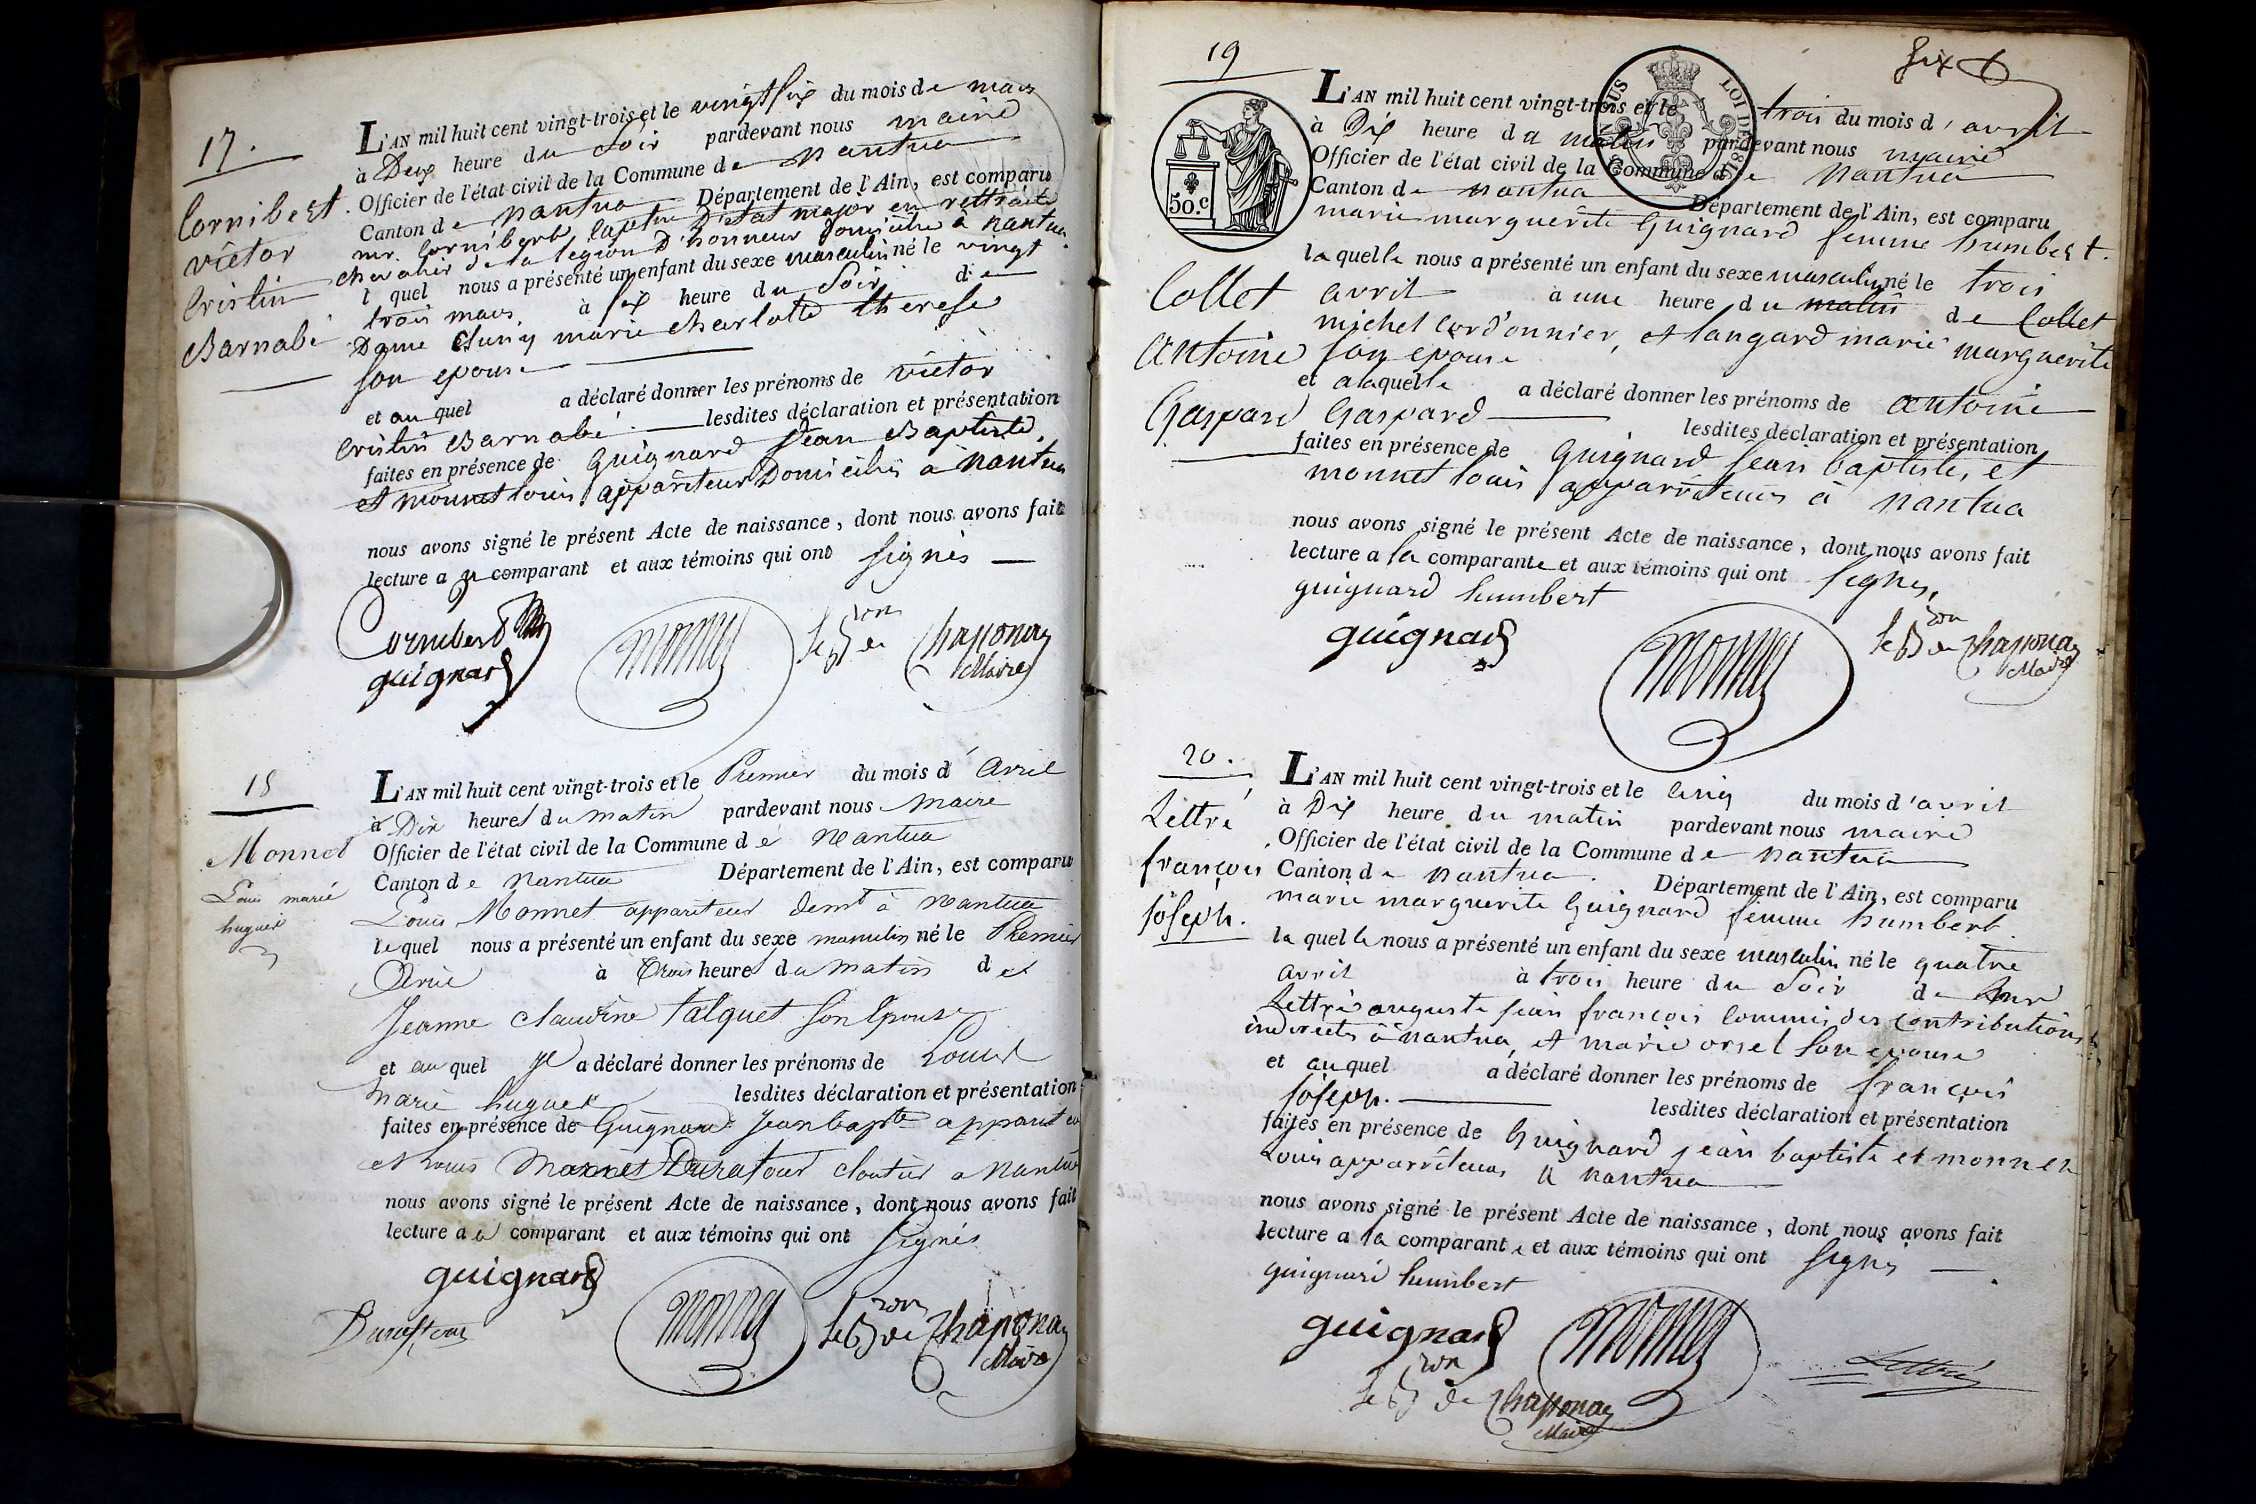 17.
Cornibert.
victor
Cristin
Barnabé
L'AN mil huit cent vingt-trois et le vingt six du mois de mars
à Deux heure du Soir pardevant nous maire
Officier de l'état civil de la Commune de Nantua
Canton de Nantua Département de l'Ain, est comparu
mr. Cornibert, Captne D'état major en rettraite
chevalier de la légion D'honneur domicilié à Nantua.
l quel nous a présenté un enfant du sexe masculin né le vingt
trois mars à six heure du Soir de
Dame Cluny marie charlotte therese
son epouse
et au quel a déclaré donner les prénoms de victor
Cristin Barnabé lesdites déclaration et présentation
faites en présence de Guignard Jean Baptiste
et monnet louis appariteur Domiciliés à Nantua
nous avons signé le présent Acte de naissance, dont nous avons fait
lecture a comparant et aux témoins qui ont signés
Cornibert
guignard monnet le Bon de Chapponay
Maire
18
Monnet
Louis marie
hugues
L'AN mil huit cent vingt-trois et le Premier du mois d'Avril
à Dix heures du matin pardevant nous Maire
Officier de l'état civil de la Commune de Nantua
Canton de Nantua Département de l'Ain, est comparu
Louis Monnet appariteur demt à Nantua
lequel nous a présenté un enfant du sexe masculin né le Premier
Avril à trois heures du matin de
Jeanne claudine Falquet son Epouse
et au quel il a déclaré donner les prénoms de Louis
Marie hugues lesdites déclaration et présentation
faites en présence de Guignard Jean bapte apparit
et Louis Monnet Duratour cloutier a Nantua
nous avons signé le présent Acte de naissance, dont nous avons fait
lecture a comparant et aux témoins qui ont Signés
guignard
Duratour monnet le Bon de Chapponay
Maire
six
19
Collet
antoine
Gaspard
50.c
LOI DE 18
L'AN mil huit cent vingt-trois et le trois du mois d'avril
à Dix heure du matin pardevant nous maire
Officier de l'état civil de la Commune de Nantua
Canton de Nantua Département de l'Ain, est comparu
marie marguerite Guignard femme humbert.
la quelle nous a présenté un enfant du sexe masculin né le trois
avril à une heure du matin de Collet
michel Cordonnier, et langard marie marguerite
son epouse
et alaquelle a déclaré donner les prénoms de antoine
Gaspard lesdites déclaration et présentation
faites en présence de Guignard Jean baptiste, et
monnet louis apparriteurs à Nantua
nous avons signé le présent Acte de naissance, dont nous avons fait
lecture a la comparante et aux témoins qui ont signés,
guignard humbert
guignard monnet le Bon de Chapponay
Maire
20.
Lettré
françois
joseph.
L'AN mil huit cent vingt-trois et le cinq du mois d'avril
à Dix heure du matin pardevant nous maire
Officier de l'état civil de la Commune de Nantua
Canton de Nantua. Département de l'Ain, est comparu
marie marguerite Guignard femme humbert.
la quelle nous a présenté un enfant du sexe masculin né le quatre
avril à trois heure du Soir de
Lettré auguste jean françois commis des contributions
indirectes à Nantua, et marie orsel son epouse
et au quel a déclaré donner les prénoms de françois
joseph. lesdites déclaration et présentation
faites en présence de Guignard jean baptiste et monnet
Louis apparriteurs a Nantua
nous avons signé le présent Acte de naissance, dont nous avons fait
lecture a la comparante et aux témoins qui ont signés
guignard humbert
guignard monnet Lettré
le Bon de Chapponay
Maire